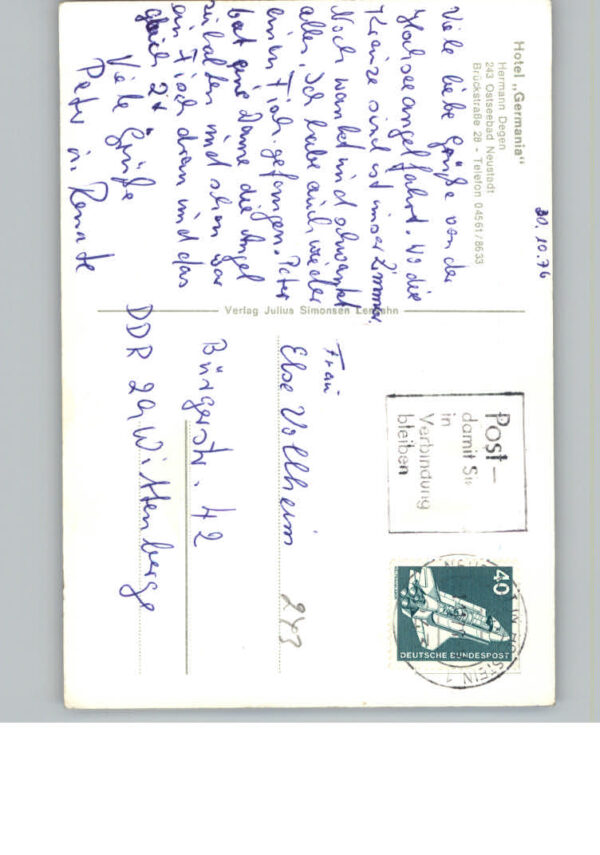 Hotel „Germania"
Hermann Degen
243 Ostseebad Neustadt
Brückstraße 28 - Telefon 04561/8633
30.10.76
Viele liebe Grüße von der
Hochseeangelfahrt. Wo die
Kreuze sind ist unser Zimmer.
Noch wankt und schwankt
alles. Ich habe auch wieder
einen Fisch gefangen. Peter
bat eine Dame die Angel
zu halten und schon war
ein Fisch dran und das
gleich 2x
Viele Grüße
Peter u. Renate
Verlag Julius Simonsen
Post –
damit Sie
in
Verbindung
bleiben
40
DEUTSCHE BUNDESPOST
Frau
Else Vollheim
Bürgerstr. 42
DDR 29 Wittenberge
243